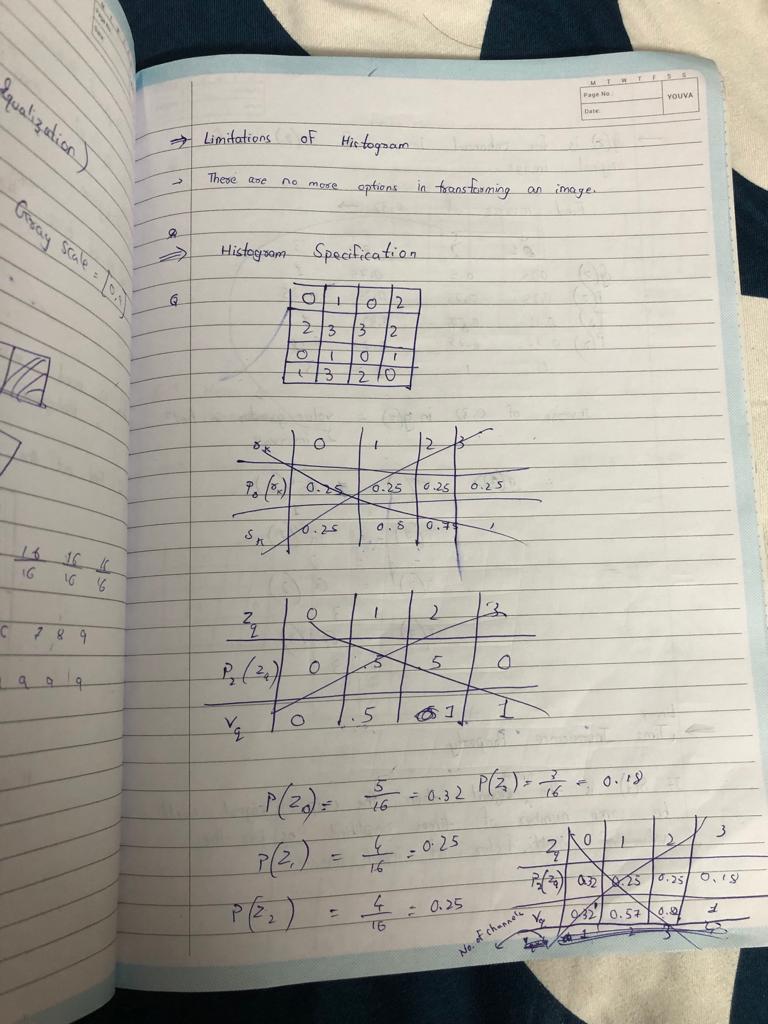 Page No.
M T W T F S S
Page No.:
YOUVA
Date:
Equalization)
Gray Scale =
16/16 16/16
7 8 9
9 9 9
⇒ Limitations of Histogram
→ There are no more options in transforming an image.
Q
⇒ Histogram Specification
Q
0 1 0 2
2 3 3 2
0 1 0 1
1 3 2 0
rk 0 1 2 3
(rk) 0.25 0.25 0.25 0.25
Sk 0.25 0.5 0.75 1
Zq 0 1 2 3
Pz(Zq) 0 .5 .5 0
Vq 0 .5 1 1
P(Z0) = 5/16 = 0.32 P(Z3) = 3/16 = 0.18
P(Z1) = 4/16 = 0.25
P(Z2) = 4/16 = 0.25
Zq 0 1 2 3
Pz(Zq) 0.32 0.25 0.25 0.18
Vq 0.32 0.57 0.82 1
No. of channels
1 2 3